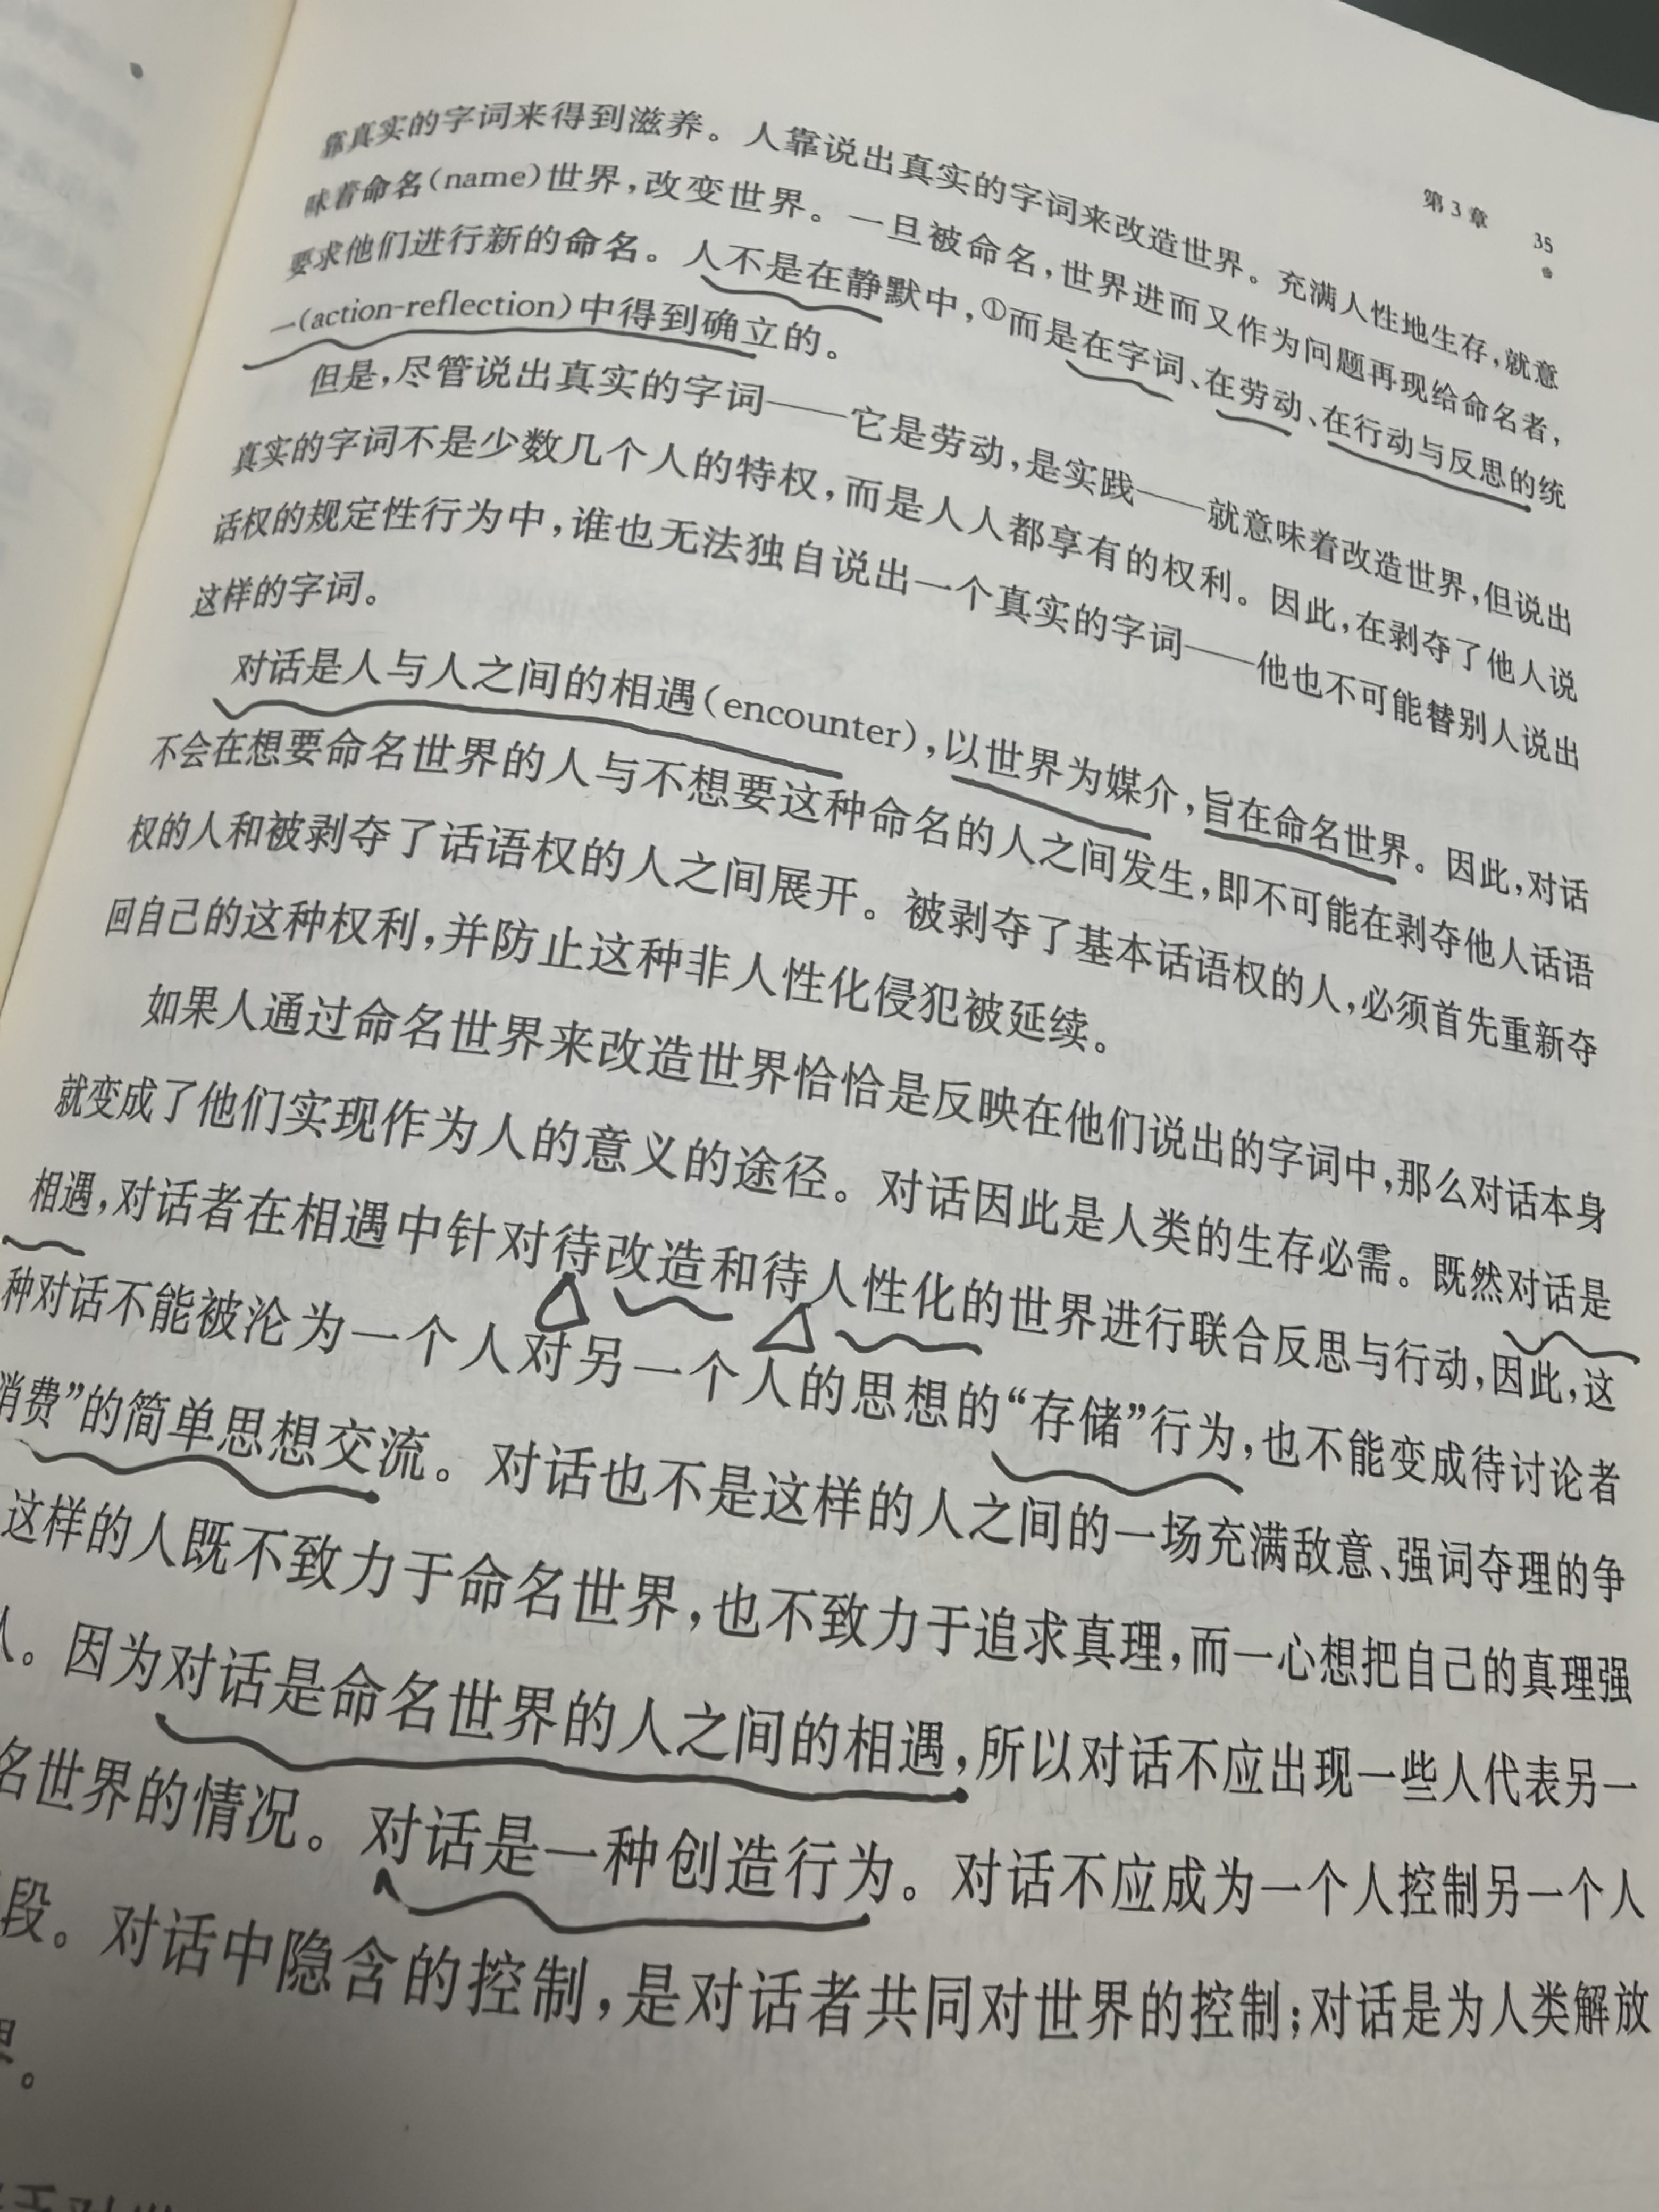 第3章 35
靠真实的字词来得到滋养。人靠说出真实的字词来改造世界。充满人性地生存,就意
味着命名(name)世界,改变世界。一旦被命名,世界进而又作为问题再现给命名者,
要求他们进行新的命名。人不是在静默中,①而是在字词、在劳动、在行动与反思的统
一(action-reflection)中得到确立的。
但是,尽管说出真实的字词——它是劳动,是实践——就意味着改造世界,但说出
真实的字词不是少数几个人的特权,而是人人都享有的权利。因此,在剥夺了他人说
话权的规定性行为中,谁也无法独自说出一个真实的字词——他也不可能替别人说出
这样的字词。
对话是人与人之间的相遇(encounter),以世界为媒介,旨在命名世界。因此,对话
不会在想要命名世界的人与不想要这种命名的人之间发生,即不可能在剥夺他人话语
权的人和被剥夺了话语权的人之间展开。被剥夺了基本话语权的人,必须首先重新夺
回自己的这种权利,并防止这种非人性化侵犯被延续。
如果人通过命名世界来改造世界恰恰是反映在他们说出的字词中,那么对话本身
就变成了他们实现作为人的意义的途径。对话因此是人类的生存必需。既然对话是
相遇,对话者在相遇中针对待改造和待人性化的世界进行联合反思与行动,因此,这
种对话不能被沦为一个人对另一个人的思想的“存储”行为,也不能变成待讨论者
消费”的简单思想交流。对话也不是这样的人之间的一场充满敌意、强词夺理的争
这样的人既不致力于命名世界,也不致力于追求真理,而一心想把自己的真理强
人。因为对话是命名世界的人之间的相遇,所以对话不应出现一些人代表另一
名世界的情况。对话是一种创造行为。对话不应成为一个人控制另一个人
段。对话中隐含的控制,是对话者共同对世界的控制;对话是为人类解放
。